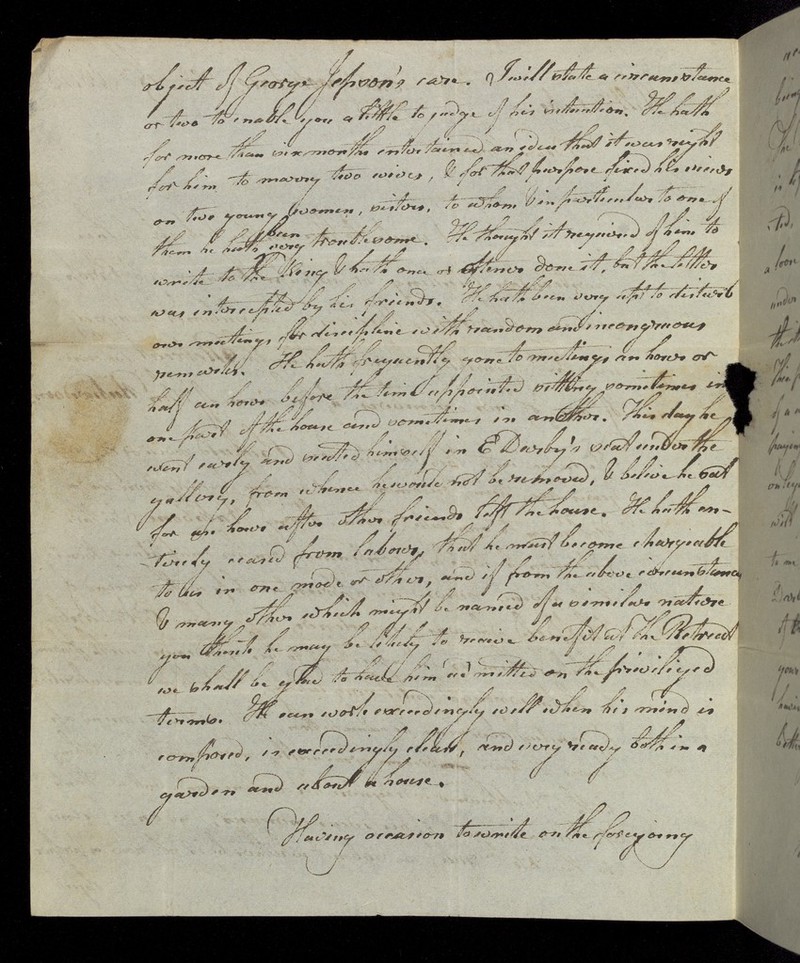 object of George Jepson's care. I will state a circumstance
or two to enable you a little to judge of his intention. He hath
for more than six months entertained an idea that it was right
for him to marry two wives, & for that purpose fixed his views
on two young women, sisters, to whom & in particular to one of
them he hath been very troublesome. He thought it required of him to
write to the King & hath once or oftener done it, but the letter
was intercepted by his friends. He hath been very apt to disturb
our meetings for discipline with random and incongruous
remarks. He hath frequently gone to meetings an hour or
half an hour before the time appointed sitting sometimes in
one part of the house and sometimes in another. This day he
went early and seated himself in E Darby's seat under the
gallery, from whence he would not be removed, & believe he sat
for an hour after other friends left the house. He hath en-
tirely ceased from labour, that he must become chargeable
to us in one mode or other, and if from the above circumstances
& many other which might be named of a similar nature
you think he may be likely to receive benefit at the Retreat
we shall be glad to have him admitted on the priviliged
terms. He can work exceedingly well when his mind is
composed, is exceedingly clean, and very ready both in a
garden and about a house.
Having occasion to write on the foregoing